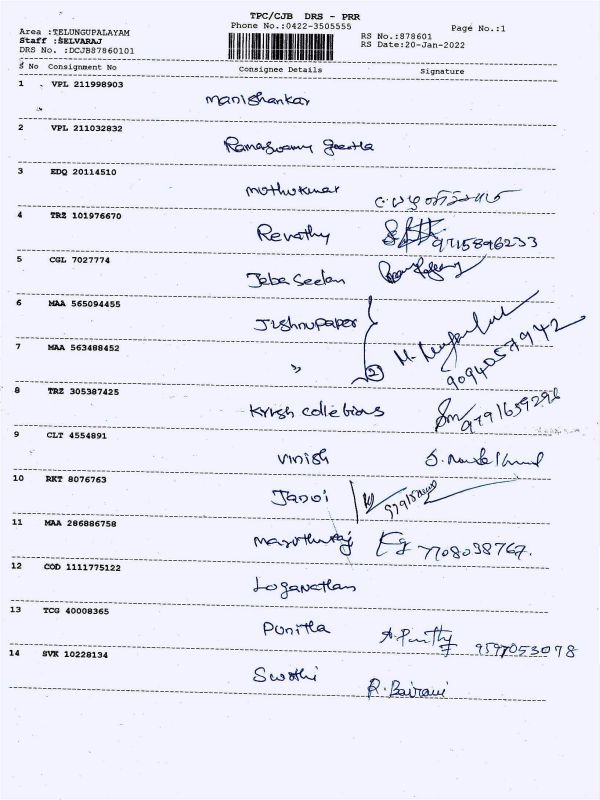 TPC/CJB DRS - PRR
Phone No.:0422-3505555 Page No.:1
Area :TELUNGUPALAYAM
Staff :SELVARAJ RS No.:878601
DRS No. :DCJB87860101 RS Date:20-Jan-2022
S No Consignment No Consignee Details Signature
1 VPL 211998903
Manishankar
2 VPL 211032832
Ramaswamy Geetha
3 EDQ 20114510
Muthukumar
4 TRZ 101976670
Revathy 9715896233
5 CGL 7027774
Jeba Seelan
6 MAA 565094455
Jishnupaper
7 MAA 563488452
" 2 9094057942
8 TRZ 305387425
Krish colletions 9791659296
9 CLT 4554891
Vinish
10 RKT 8076763
11 MAA 286886758
Maruthuraj 7708038767.
12 COD 1111775122
Loganathan
13 TCG 40008365
Punitha 9597053078
14 SVK 10228134
Swathi R. Bairavi